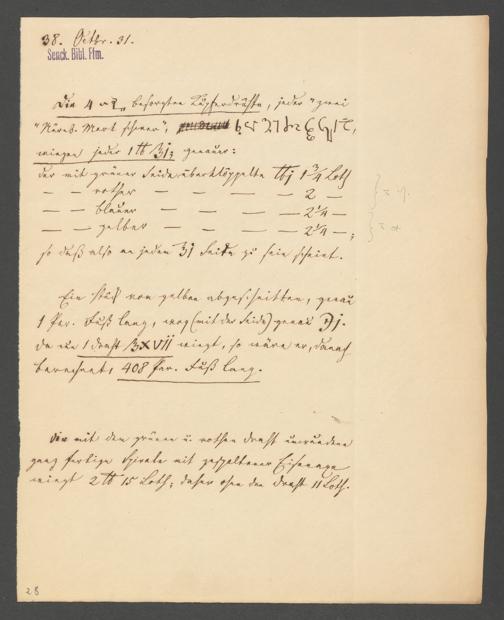 38. Octbr. 31.
Senck. Bibl. Ffm.
Die 4 besorgten Kupferdrähte, jeder "zwei
"Nürnb. Mark schwer",
wiegen jeder 1 ℔ ℥j; genauer:
der mit grüner Seide übersklöppelte ℔j 1¾ Loth
— — rother — — — — 2 —
— — blauer — — — — 2¼ —
— — gelber — — — — 2¼ —;
so daß also an jedem ℥j Seide zu sein scheint.
Ein Stück vom gelben abgeschnitten, genau
1 Par. Fuß lang, wog (mit der Seide) genau ℈j.
Da nun 1 Draht ℥XVII wiegt, so wäre er, danach
berechnet, 408 Par. Fuß lang.
Die mit dem grünen u. rothen Draht umwundene
ganz fertige Spirale mit gespaltener Eisenaxe
wiegt 2 ℔ 15 Loth; daher ohne den Draht 11 Loth.
28